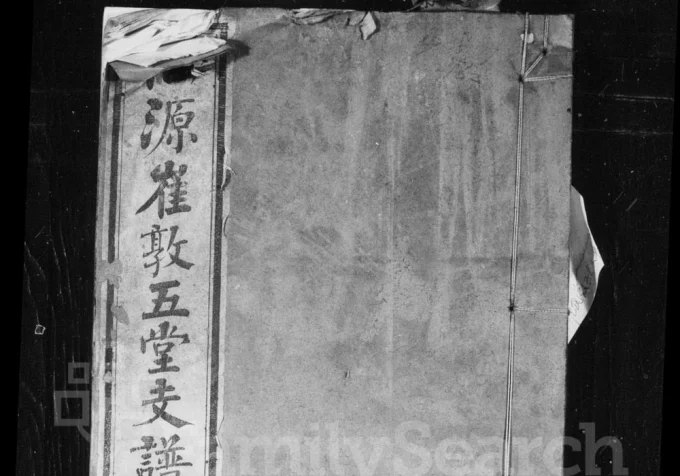 源崔敦五堂支譜
FamilySearch